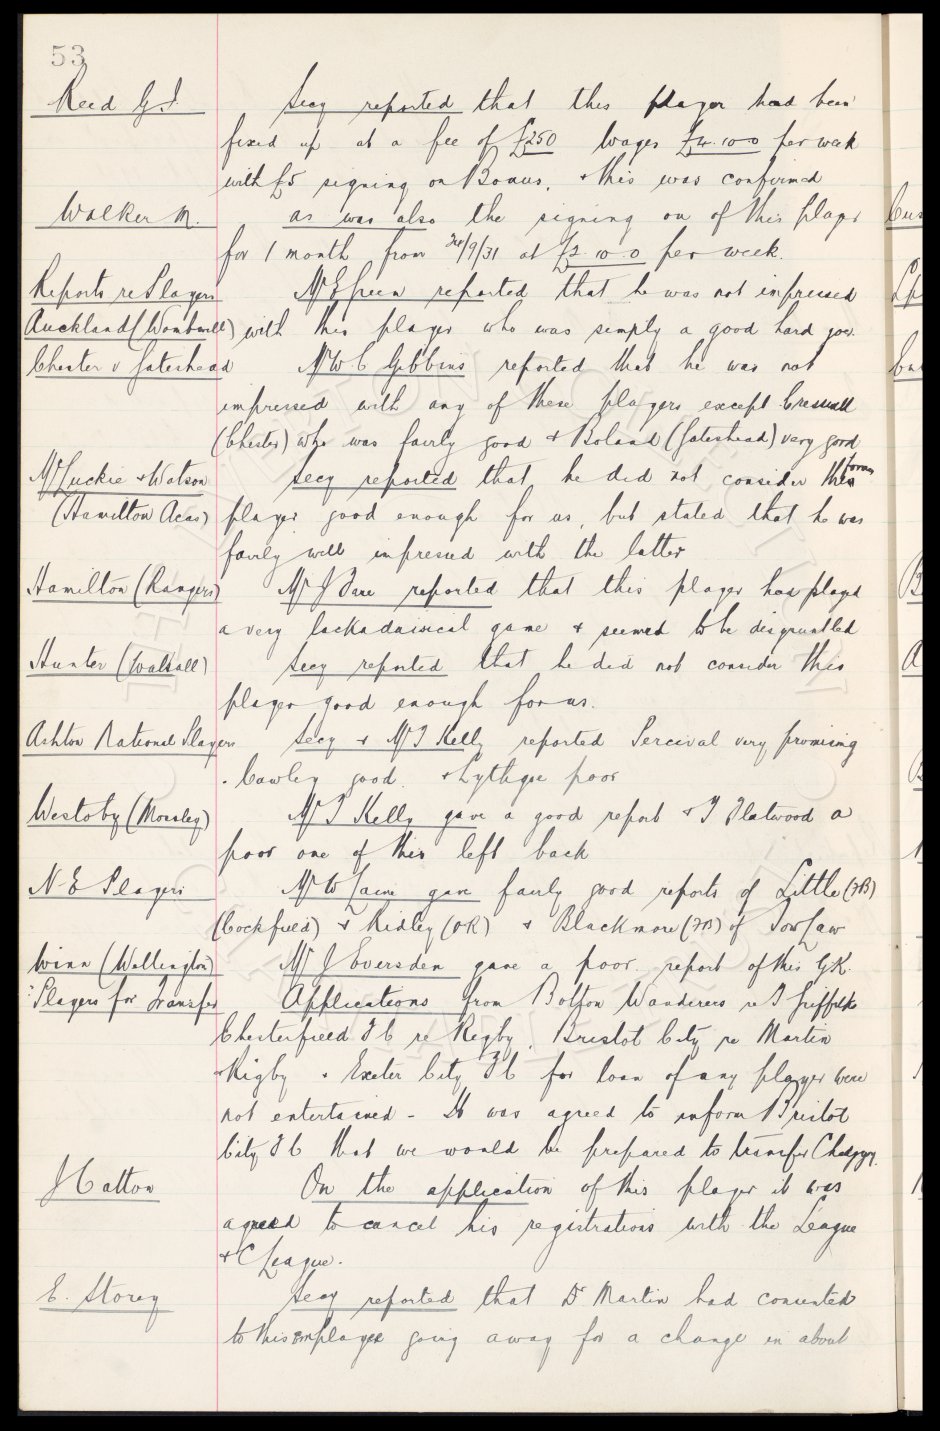 53
Reed G.J. Secy reported that this player had been
fixed up at a fee of £250 Wages £4.10.0 per week
with £5 signing on Bonus, & this was confirmed
Walker M. as was also the signing on of this player
for 1 month from /9/31 at £2.10.0 per week.
Reports re Players Mr E Green reported that he was not impressed
Auckland (Wombwell) with this player who was simply a good hard goer.
Chester v Gateshead Mr W C Gibbins reported that he was not
impressed with any of these players except Cresswell
(Chester) who was fairly good & Boland (Gateshead) very good
McLuckie & Watson Secy reported that he did not consider the former
(Hamilton Acas) player good enough for us, but stated that he was
fairly well impressed with the latter
Hamilton (Rangers) Mr J Dare reported that this player had played
a very lackadaisical game & seemed to be disgruntled
Hunter (Walsall) Secy reported that he did not consider this
player good enough for us.
Ashton National Players Secy & Mr T Kelly reported Percival very promising
. Cawley good. & Lythgoe poor
Westoby (Mossley) Mr T Kelly gave a good report & T Fleetwood a
poor one of this left back
N-E Players Mr W Laine gave fairly good reports of Little (FB)
(Cockfield) & Ridley (OR) & Blackmore (FB) of Tow Law
Winn (Wellington) Mr J Eversden gave a poor report of this GK.
Players for Transfer Applications from Bolton Wanderers re T Griffiths
Chesterfield F C re Rigby, Bristol City re Martin
& Rigby & Exeter City F C for loan of any player were
not entertained - It was agreed to inform Bristol
City F C that we would be prepared to transfer Chedgzoy.
J Catton On the application of this player it was
agreed to cancel his registrations with the League
& C League.
E. Storey Secy reported that Dr Martin had consented
to this employee going away for a change in about